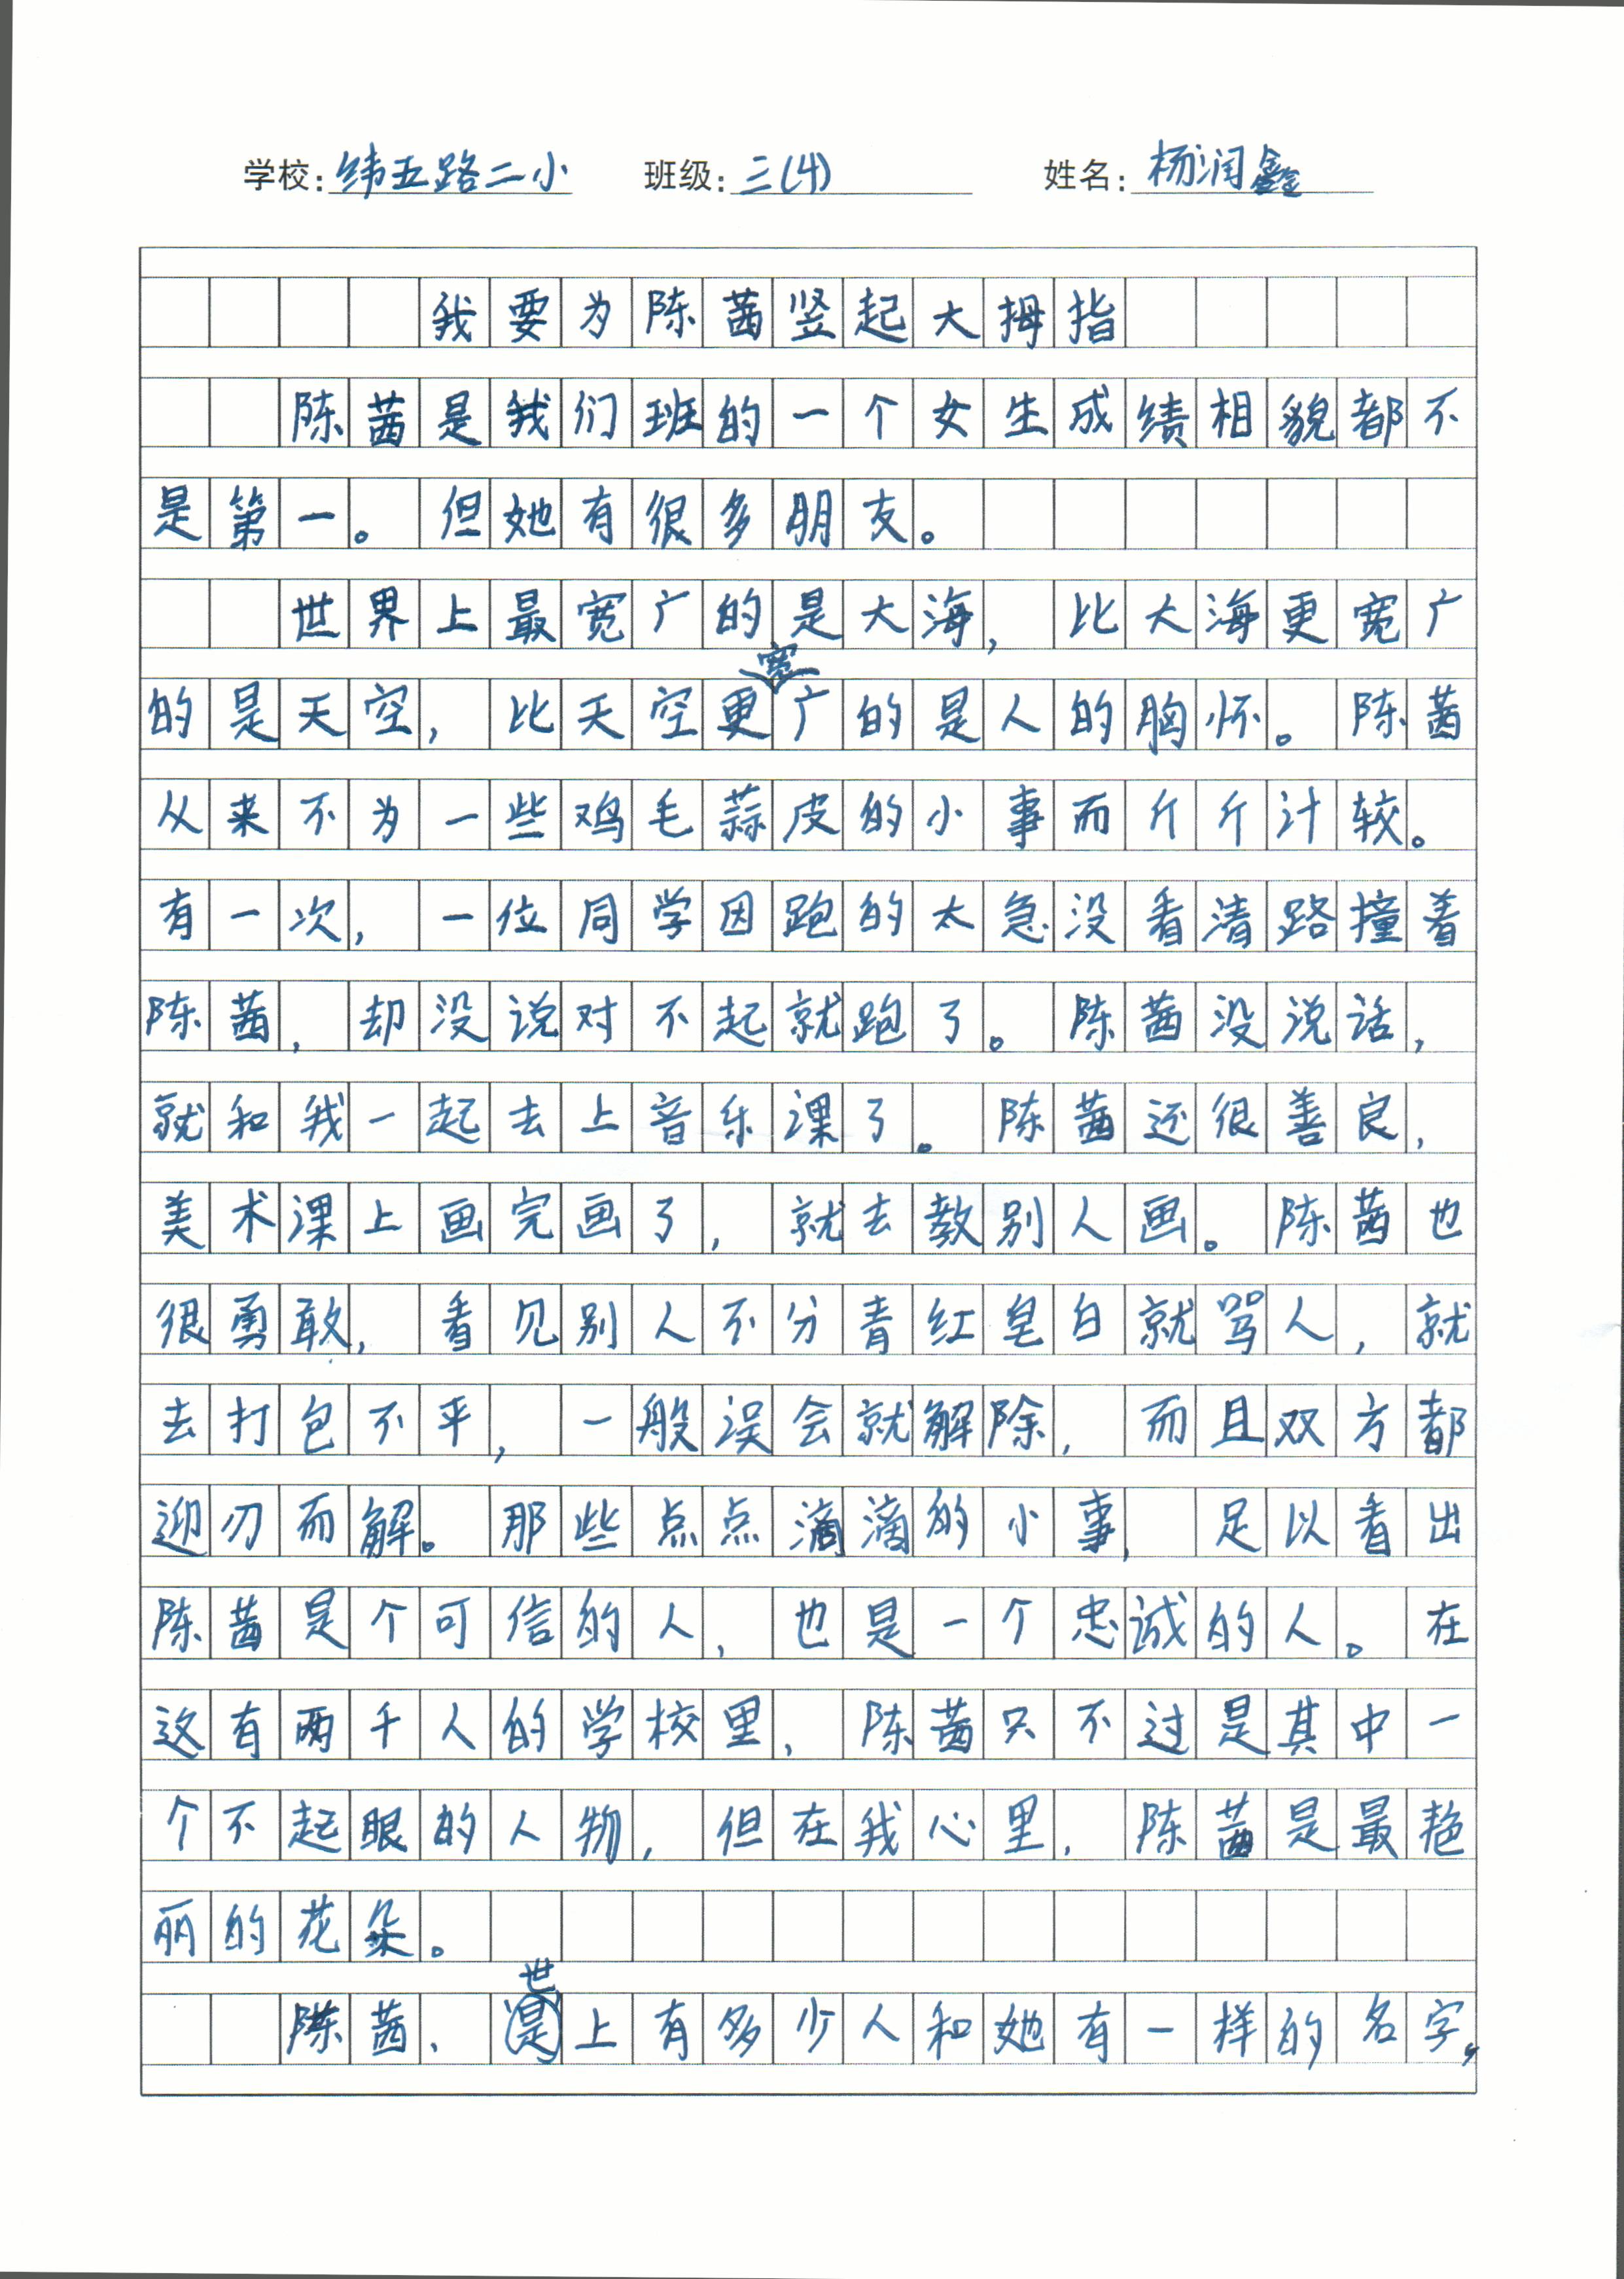 学校：纬五路二小 班级：三(4) 姓名：杨润鑫
我要为陈茜竖起大拇指
陈茜是我们班的一个女生成绩相貌都不
是第一。但她有很多朋友。
世界上最宽广的是大海，比大海更宽广
的是天空，比天空更宽广的是人的胸怀。陈茜
从来不为一些鸡毛蒜皮的小事而斤斤计较。
有一次，一位同学因跑的太急没看清路撞着
陈茜，却没说对不起就跑了。陈茜没说话，
就和我一起去上音乐课了。陈茜还很善良，
美术课上画完画了，就去教别人画。陈茜也
很勇敢，看见别人不分青红皂白就骂人，就
去打包不平，一般误会就解除，而且双方都
迎刃而解。那些点点滴滴的小事，足以看出
陈茜是个可信的人，也是一个忠诚的人。在
这有两千人的学校里，陈茜只不过是其中一
个不起眼的人物，但在我心里，陈茜是最艳
丽的花朵。
陈茜、世上有多少人和她有一样的名字，